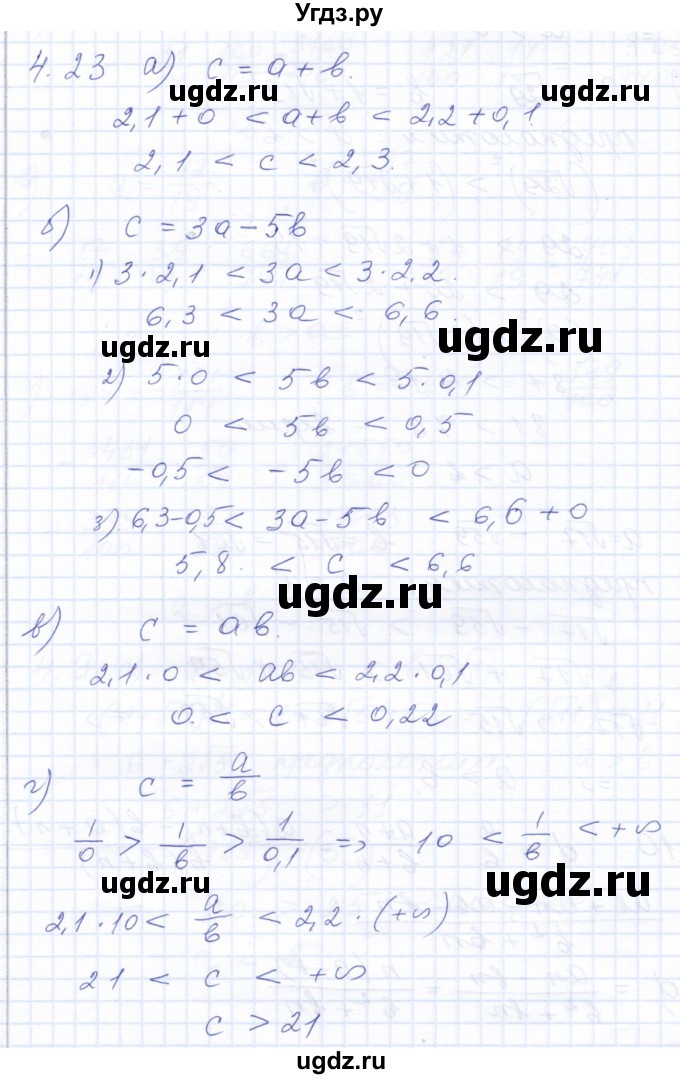 Угдз.ру
4.23 а) c = a + b.
ugdz.ru ugdz.ru
2,1 + 0 < a + b < 2,2 + 0,1.
2,1 < c < 2,3.
б) c = 3a - 5b
1) 3 · 2,1 < 3a < 3 · 2,2.
6,3 < 3a < 6,6.
ugdz.ru ugdz.ru
2) 5 · 0 < 5b < 5 · 0,1
0 < 5b < 0,5
-0,5 < -5b < 0
3) 6,3 - 0,5 < 3a - 5b < 6,6 + 0
5,8 < c < 6,6
ugdz.ru
в) c = ab.
2,1 · 0 < ab < 2,2 · 0,1
0 < c < 0,22
г) c = a/b
1/0 > 1/b > 1/0,1 => 10 < 1/b < +∞
ugdz.ru ugdz.ru
2,1 · 10 < a/b < 2,2 · (+∞)
21 < c < +∞
c > 21
ugdz.ru